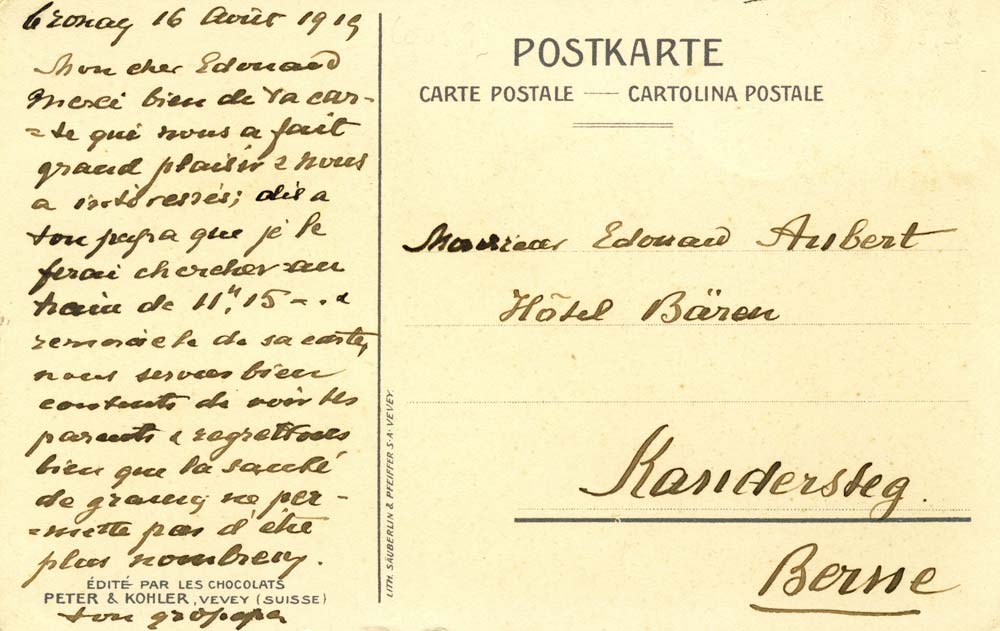 Cronay 16 Août 1919
Mon cher Edouard
Merci bien de ta car-
-te qui nous a fait
grand plaisir & nous
a intéressés; dis a
ton papa que je le
ferai chercher au
train de 11h,15 - . &
remercie le de sa carte,
nous serons bien
contents de voir tes
parents & regrettons
bien que la santé
de gramy ne per-
-mette pas d'être
plus nombreux.
ton gropapa
ÉDITÉ PAR LES CHOCOLATS
PETER & KOHLER, VEVEY (SUISSE)
LITH. SÄUBERLIN & PFEIFFER S.A. VEVEY.
POSTKARTE
CARTE POSTALE — CARTOLINA POSTALE
Monsieur Edouard Aubert
Hôtel Bären
Kandersteg.
Berne